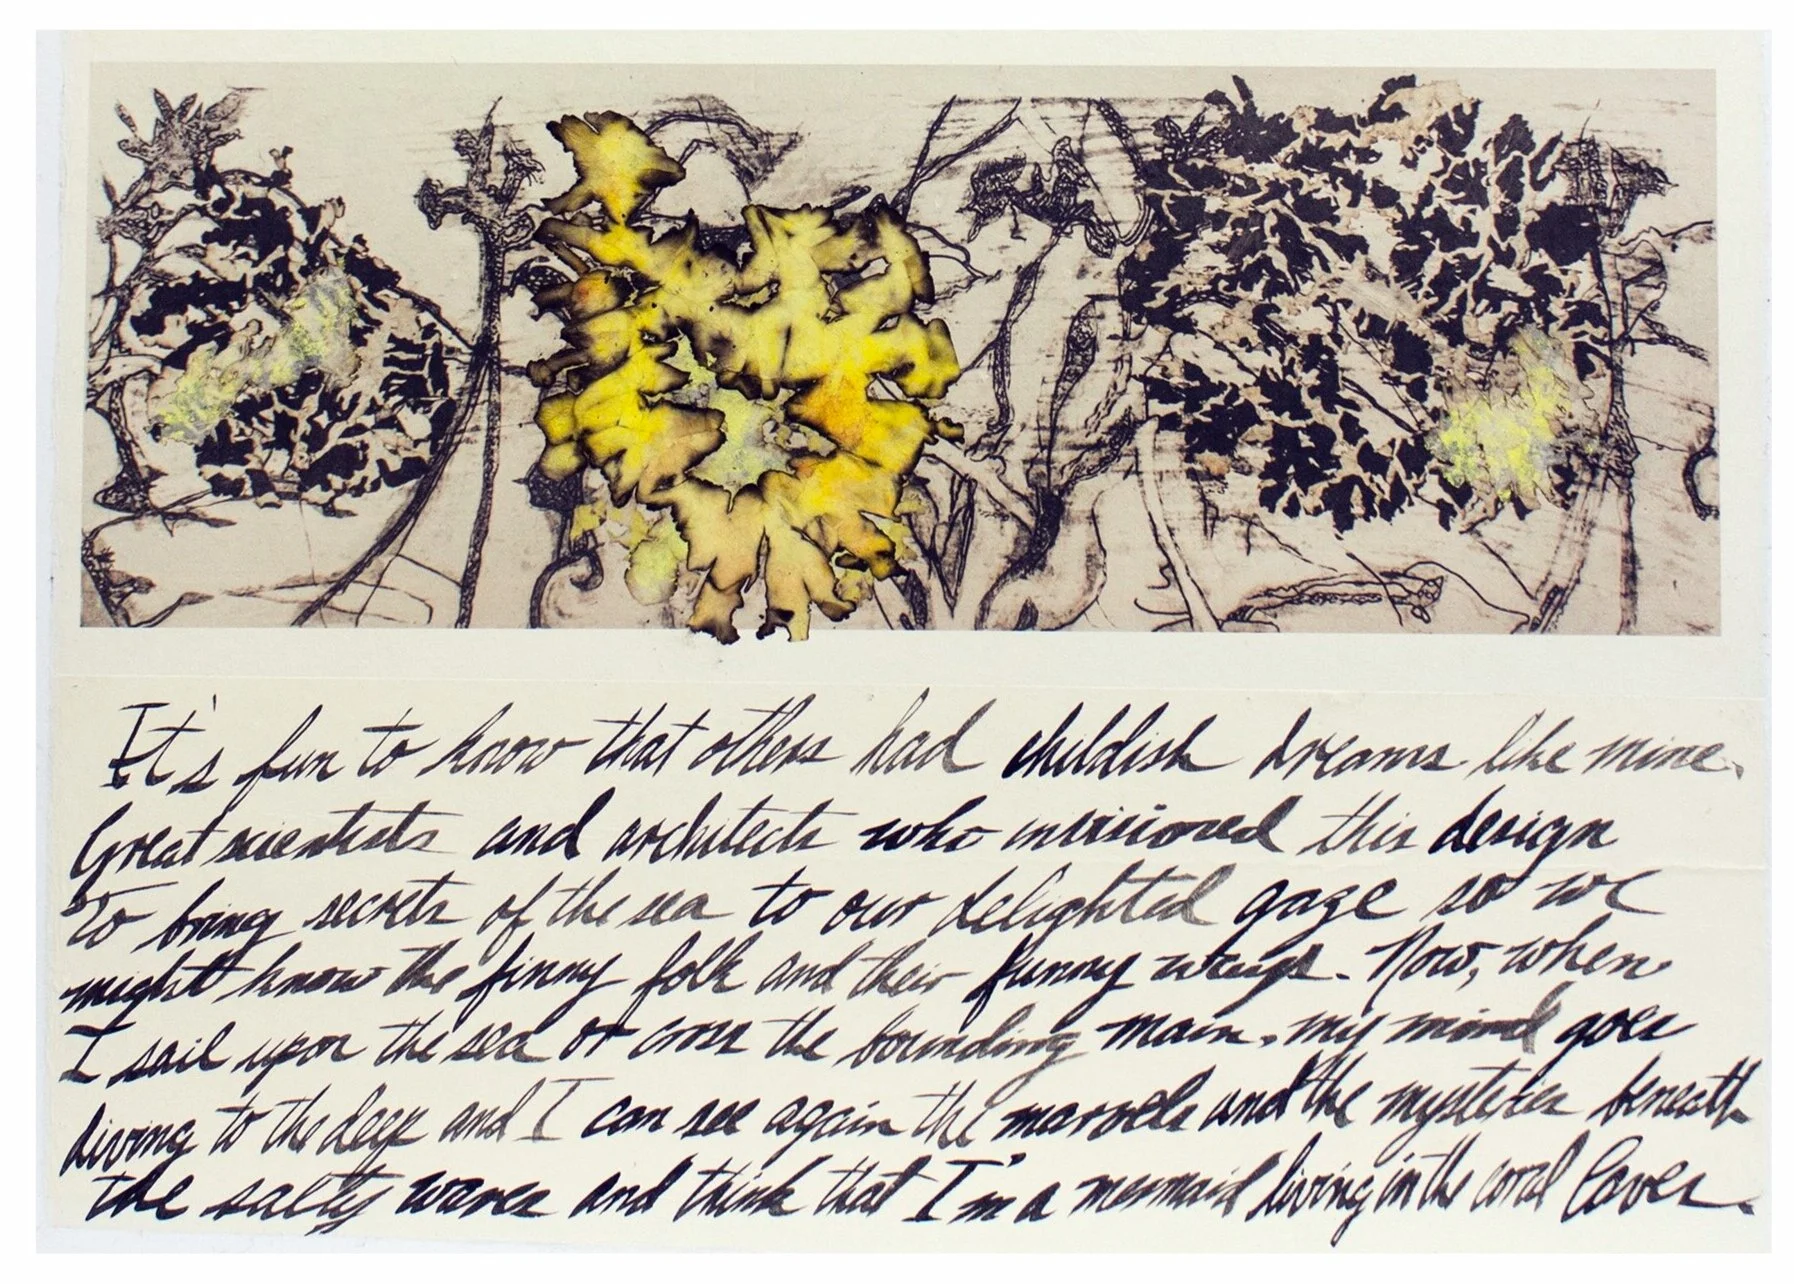 It's fun to know that others had childish dreams like mine.
Great scientists and architects who invisioned this design
To bring secrets of the sea to our delighted gaze so we
might know the finny folk and their funny ways. Now, when
I sail upon the sea or cross the bounding main, my mind goes
diving to the deep and I can see again the marvels and the mysteries beneath
the salty waves and think that I'm a mermaid living in the coral Caves.